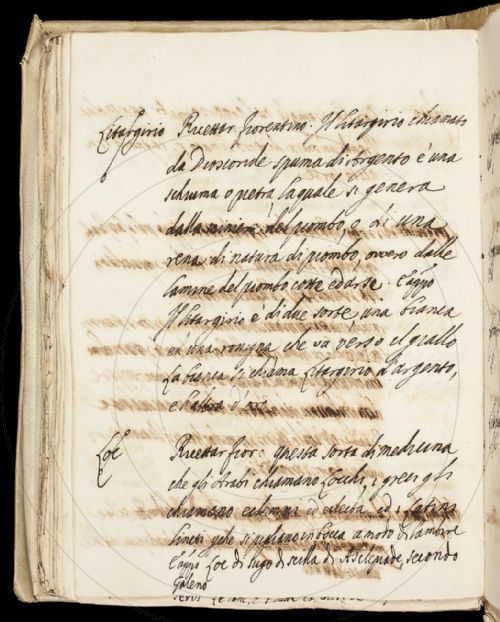 Litargirio Ricettar fiorentino. Il litargirio chiamato
da Dioscoride spuma di Argento è una
schiuma o pietra la quale si genera
dalla miniera del piombo, o di una
rena di natura di piombo, overo dalle
lamine del piombo cotte ed arse.
Il litargirio è di due sorte una bianca
ed una che va verso il giallo
la bianca si chiama litargirio d'argento,
e l'altra d'oro
Loc Ricettar fior: questa sorta di medicina
che gli Arabi chiamano Locchi, i greci gli
chiamano eclemmi ed ed i Latini
si pigliano in bocca a modo di lambire
Loc di sugo di scilla di Asclepiade, secondo
Galeno